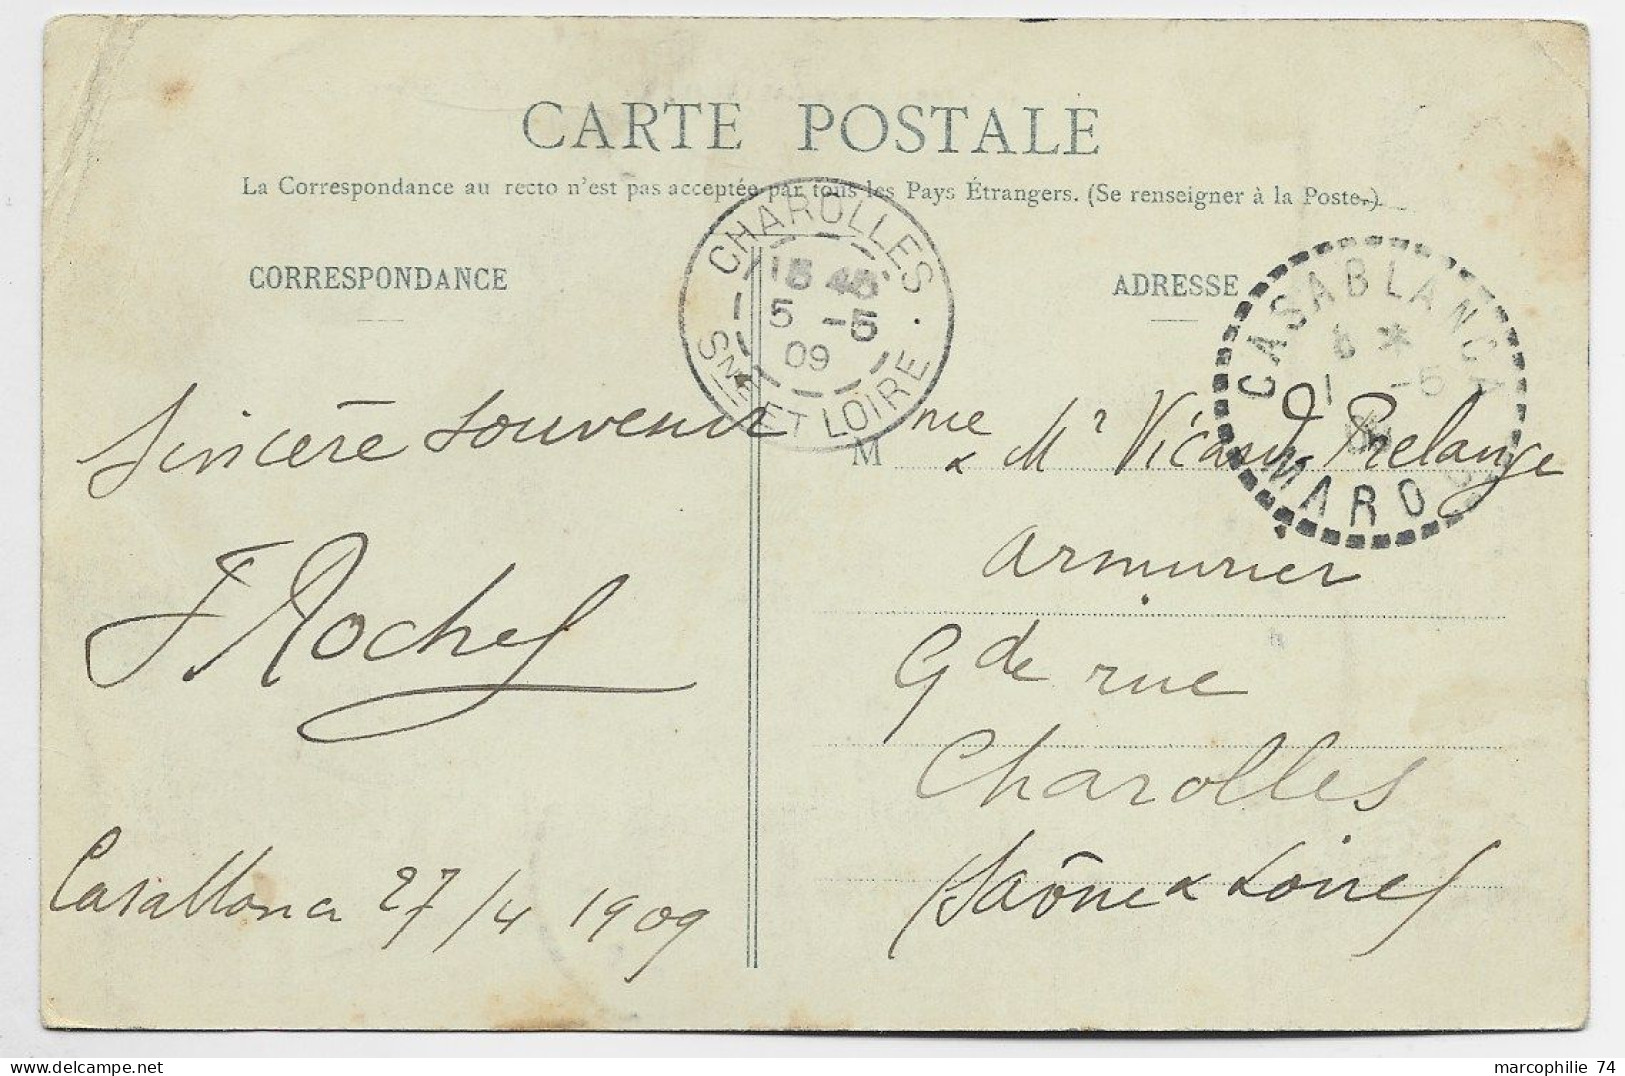 CARTE POSTALE
La Correspondance au recto n'est pas acceptée par tous les Pays Étrangers. (Se renseigner à la Poste.)
CORRESPONDANCE
ADRESSE
CHAROLLES
15 45
5 -5
09
SNE ET LOIRE
CASABLANCA
8 *
1 -5
MAROC
Sincère souvenir
F Rochef
Casablanca 27/4 1909
Mme & Mr Vicard Prelange
armurier
Gde rue
Charolles
(Saône & Loire)
marcophilie 74